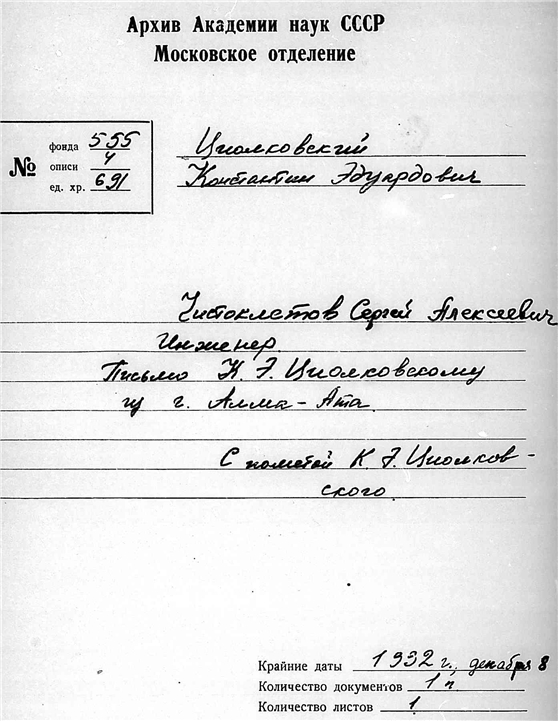 Архив Академии наук СССР
Московское отделение
№
фонда 555
описи 4
ед. хр. 691
Циолковский
Константин Эдуардович
Чистоклетов Сергей Алексеевич
Инженер
Письмо К. Э. Циолковскому
из г. Алма-Ата
С пометой К. Э. Циолков-
ского.
Крайние даты 1932 г., декабря 8
Количество документов 1 п.
Количество листов 1